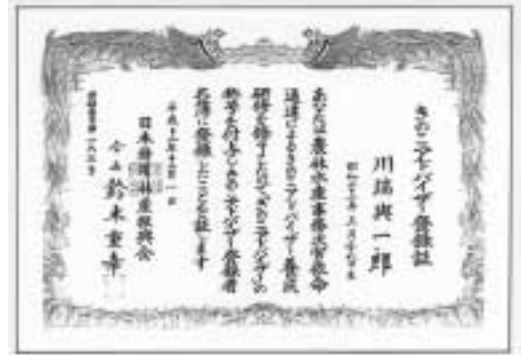 きのこアドバイザー登録証
川端與一郎
あなたは農林水産事務次官依命
通達によるきのこアドバイザー養成
研修を修了したのできのこアドバイザーの
称号を付与しきのこアドバイザー登録者
名簿に登録したことを証します
日本特用林産振興会
会長 鈴木重幸